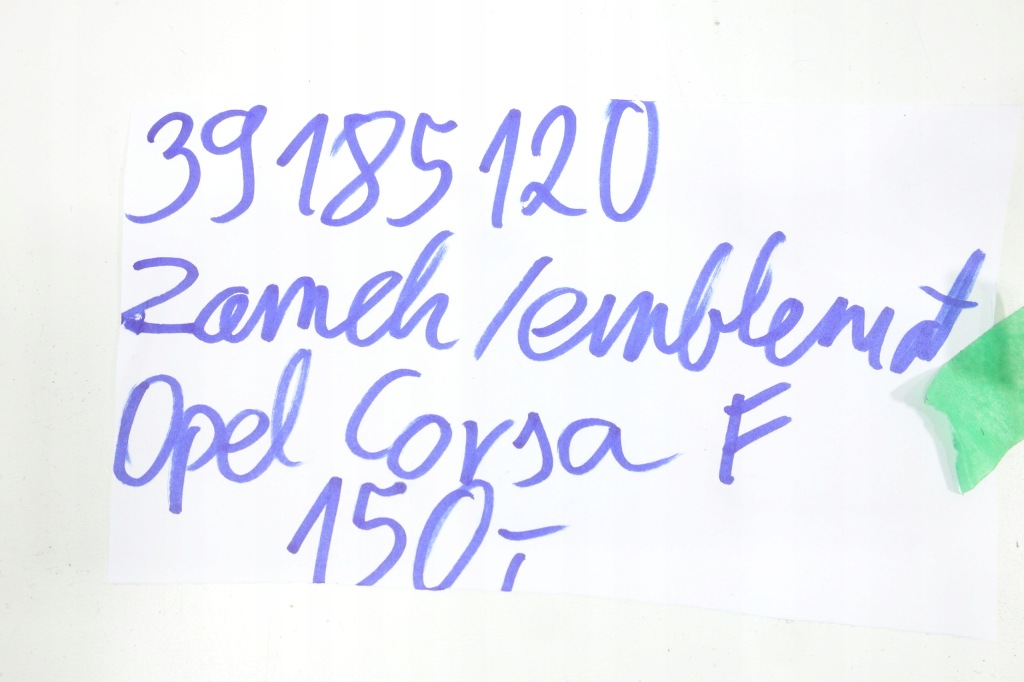 39185120
Zamek/emblemat
Opel Corsa F
150,-